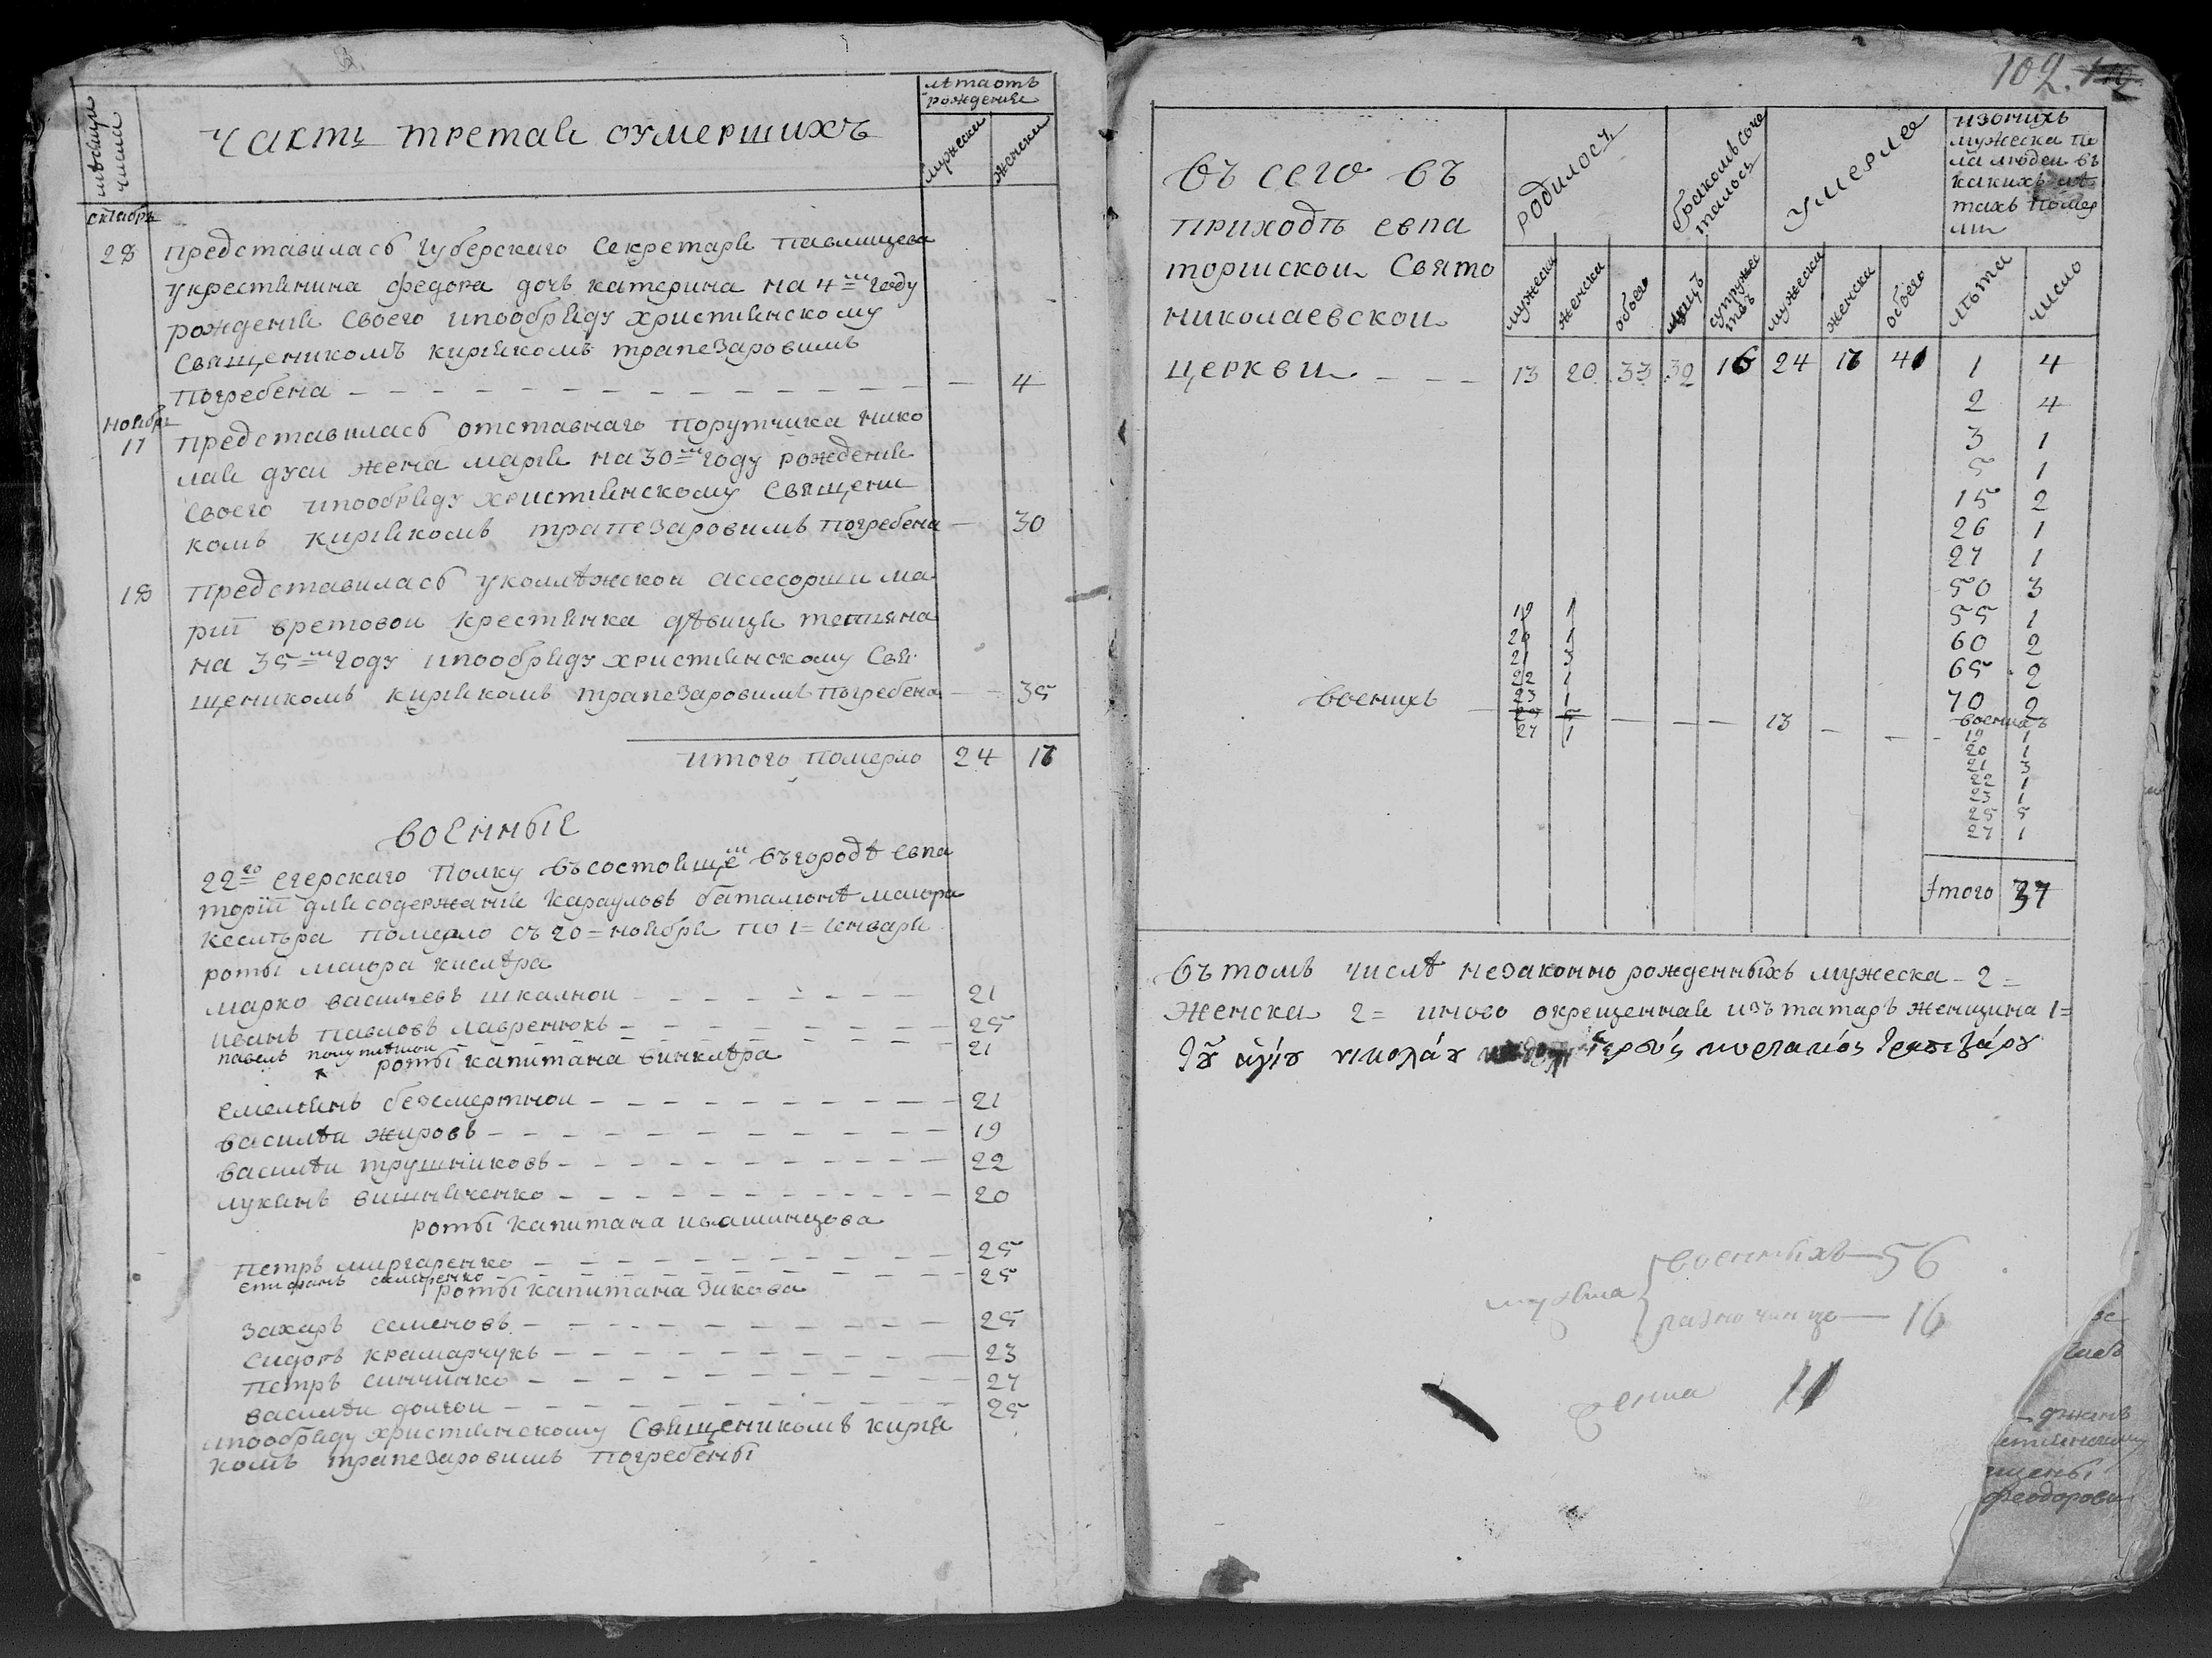 мѣсяци числа
часть третая оумершихъ
лѣта отъ
рожденія
мужеска
женски
октабрь
28 представиласъ губерскаго секретаря павлищева
укрестянина федора дочь катерина на 4=м году
рожденія своего ипообряду християнскому
священикомъ кирияком трапезаровимъ
погребена — 4
ноября
11 представиласъ отставнаго порутчика нико
лая дуси жена мария на 30=м году рожденія
своего ипообряду християнскому священи
комъ кирияком трапезаровимъ погребена — 30
18 представиласъ уколѣжской асесорши ма
рии вретовой крестянка дѣвица татияна
на 35=м году ипообряду християнскому свя
щеникомъ кирияком трапезаровимъ погребена — 35
итого померло 24 17
военные
22го егерскаго полку въсостоящем въгородѣ евпа
тории для содержания карауловъ баталионѣ маиора
кеслѣра померло съ 20= ноября по 1= генваря
роты маиора кислѣра
марко василіевъ шкалной — 21
иванъ павловъ лавренюкъ — 25
павелъ полулѣшой — 21
роты капитана винклѣра
емелянъ безсмертной — 21
василѣи жировъ — 19
василѣи трушниковъ — 22
лукянъ вишниченко — 20
роты капитана ивашинцова
петръ миргаренко — 25
епифанъ — 25
роты капитана зикова
захаръ семеновъ — 25
сидоръ крамарчукъ — 23
петръ синчинко — 27
василѣи долгои — 25
ипообряду християнскому священикомъ кирия
комъ трапезаровимъ погребены
102. 110
въ сего въ
приходѣ евпа
торииской свято
николаевской
церкви
родилось
бракомъ соче
талось
умерле
изонихъ
мужеска по
ла людеи въ
какихъ лѣ
тахъ помер
ли
мужеска женски обоего лицъ супружес
твъ мужески женски обоего лѣта число
13 20 33 32 16 24 17 41 1 4
2 4
3 1
5 1
15 2
26 1
27 1
50 3
55 1
60 2
65 2
70 2
19 1
20 1
21 3
22 1
23 1
25 5
27 1
военихъ — 13
военихъ
19 1
20 1
21 3
22 1
23 1
25 5
27 1
Итого 37
Въ томъ числѣ незаконно рожденныхъ мужеска - 2 =
женска 2 = иново окрещенная изъ татаръ женщина 1=
τοῦ ἁγίου νικολάου ἱερεύς κυριακός τραπεζάρου
мужска военныхъ — 56
разночинцо — 16
женска 11
джень
щены
феодорови